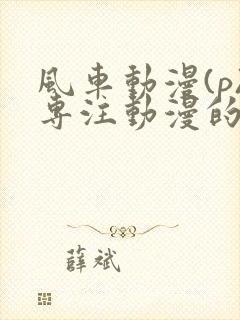 風車動漫(p
專注動漫的
薛斌